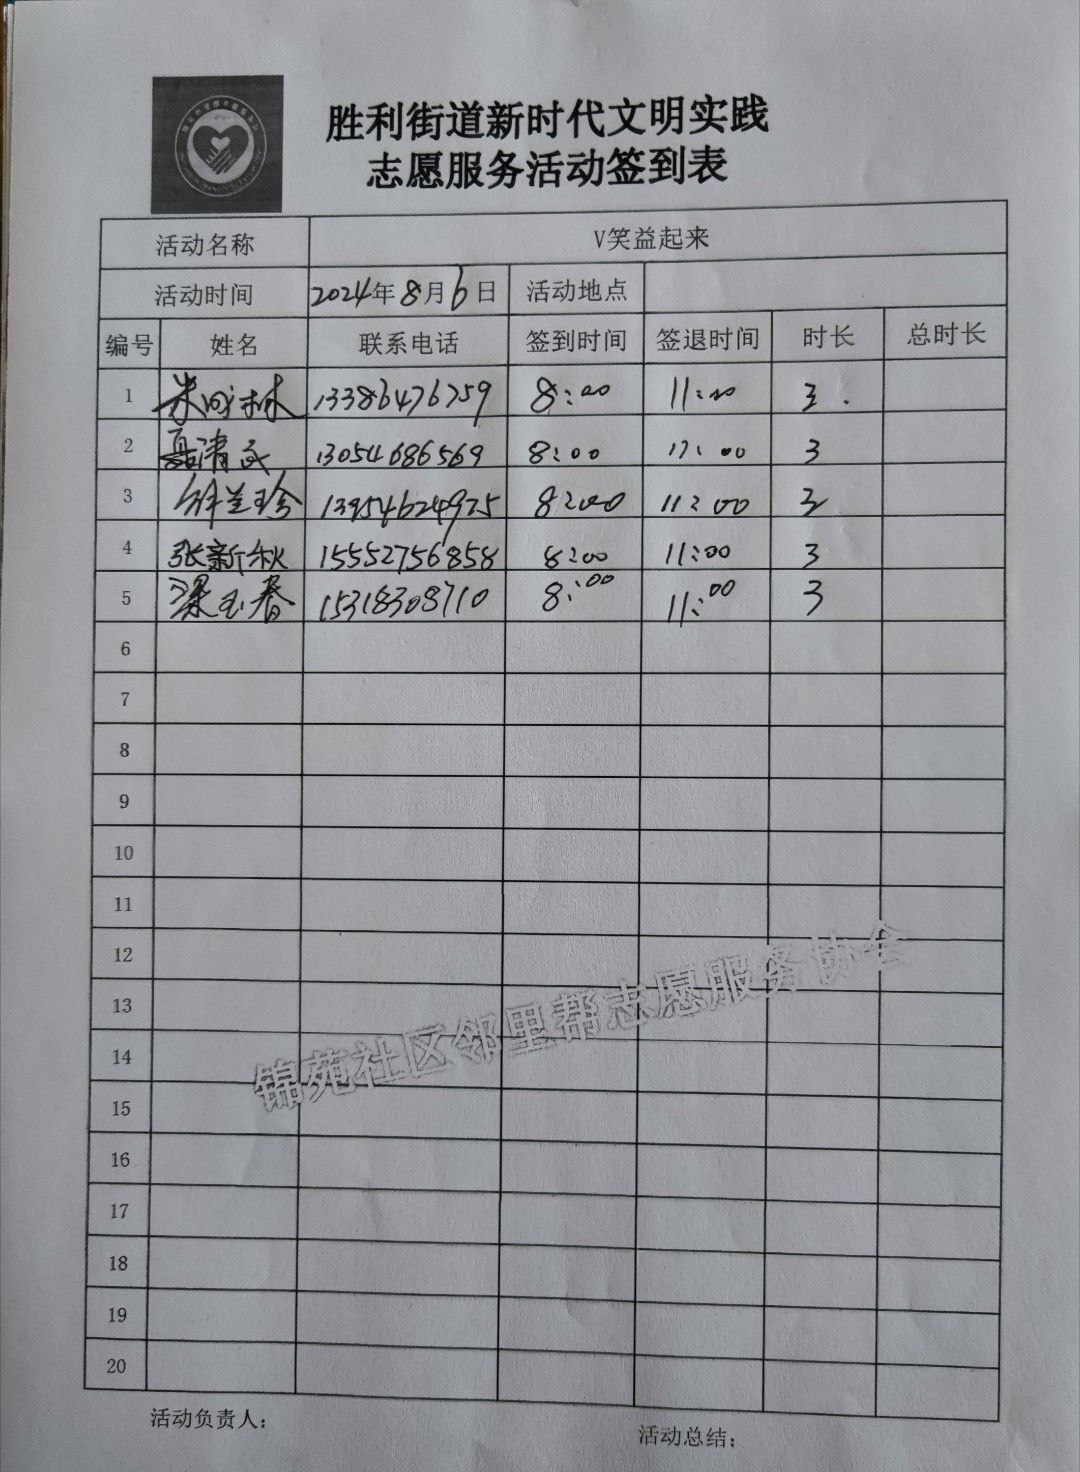 胜利街道新时代文明实践
志愿服务活动签到表
活动名称 V笑益起来
活动时间 2024年8月6日 活动地点
编号 姓名 联系电话 签到时间 签退时间 时长 总时长
1 13386476759 8:00 11:00 3.
2 聂清武 13054686569 8:00 11:00 3
3 徐兰珍 13954624975 8:00 11:00 3
4 张新秋 15552756858 8:00 11:00 3
5 梁玉春 15318308710 8:00 11:00 3
6
7
8
9
10
11
12
13
14
15
16
17
18
19
20
锦苑社区邻里帮志愿服务协会
活动负责人：
活动总结：